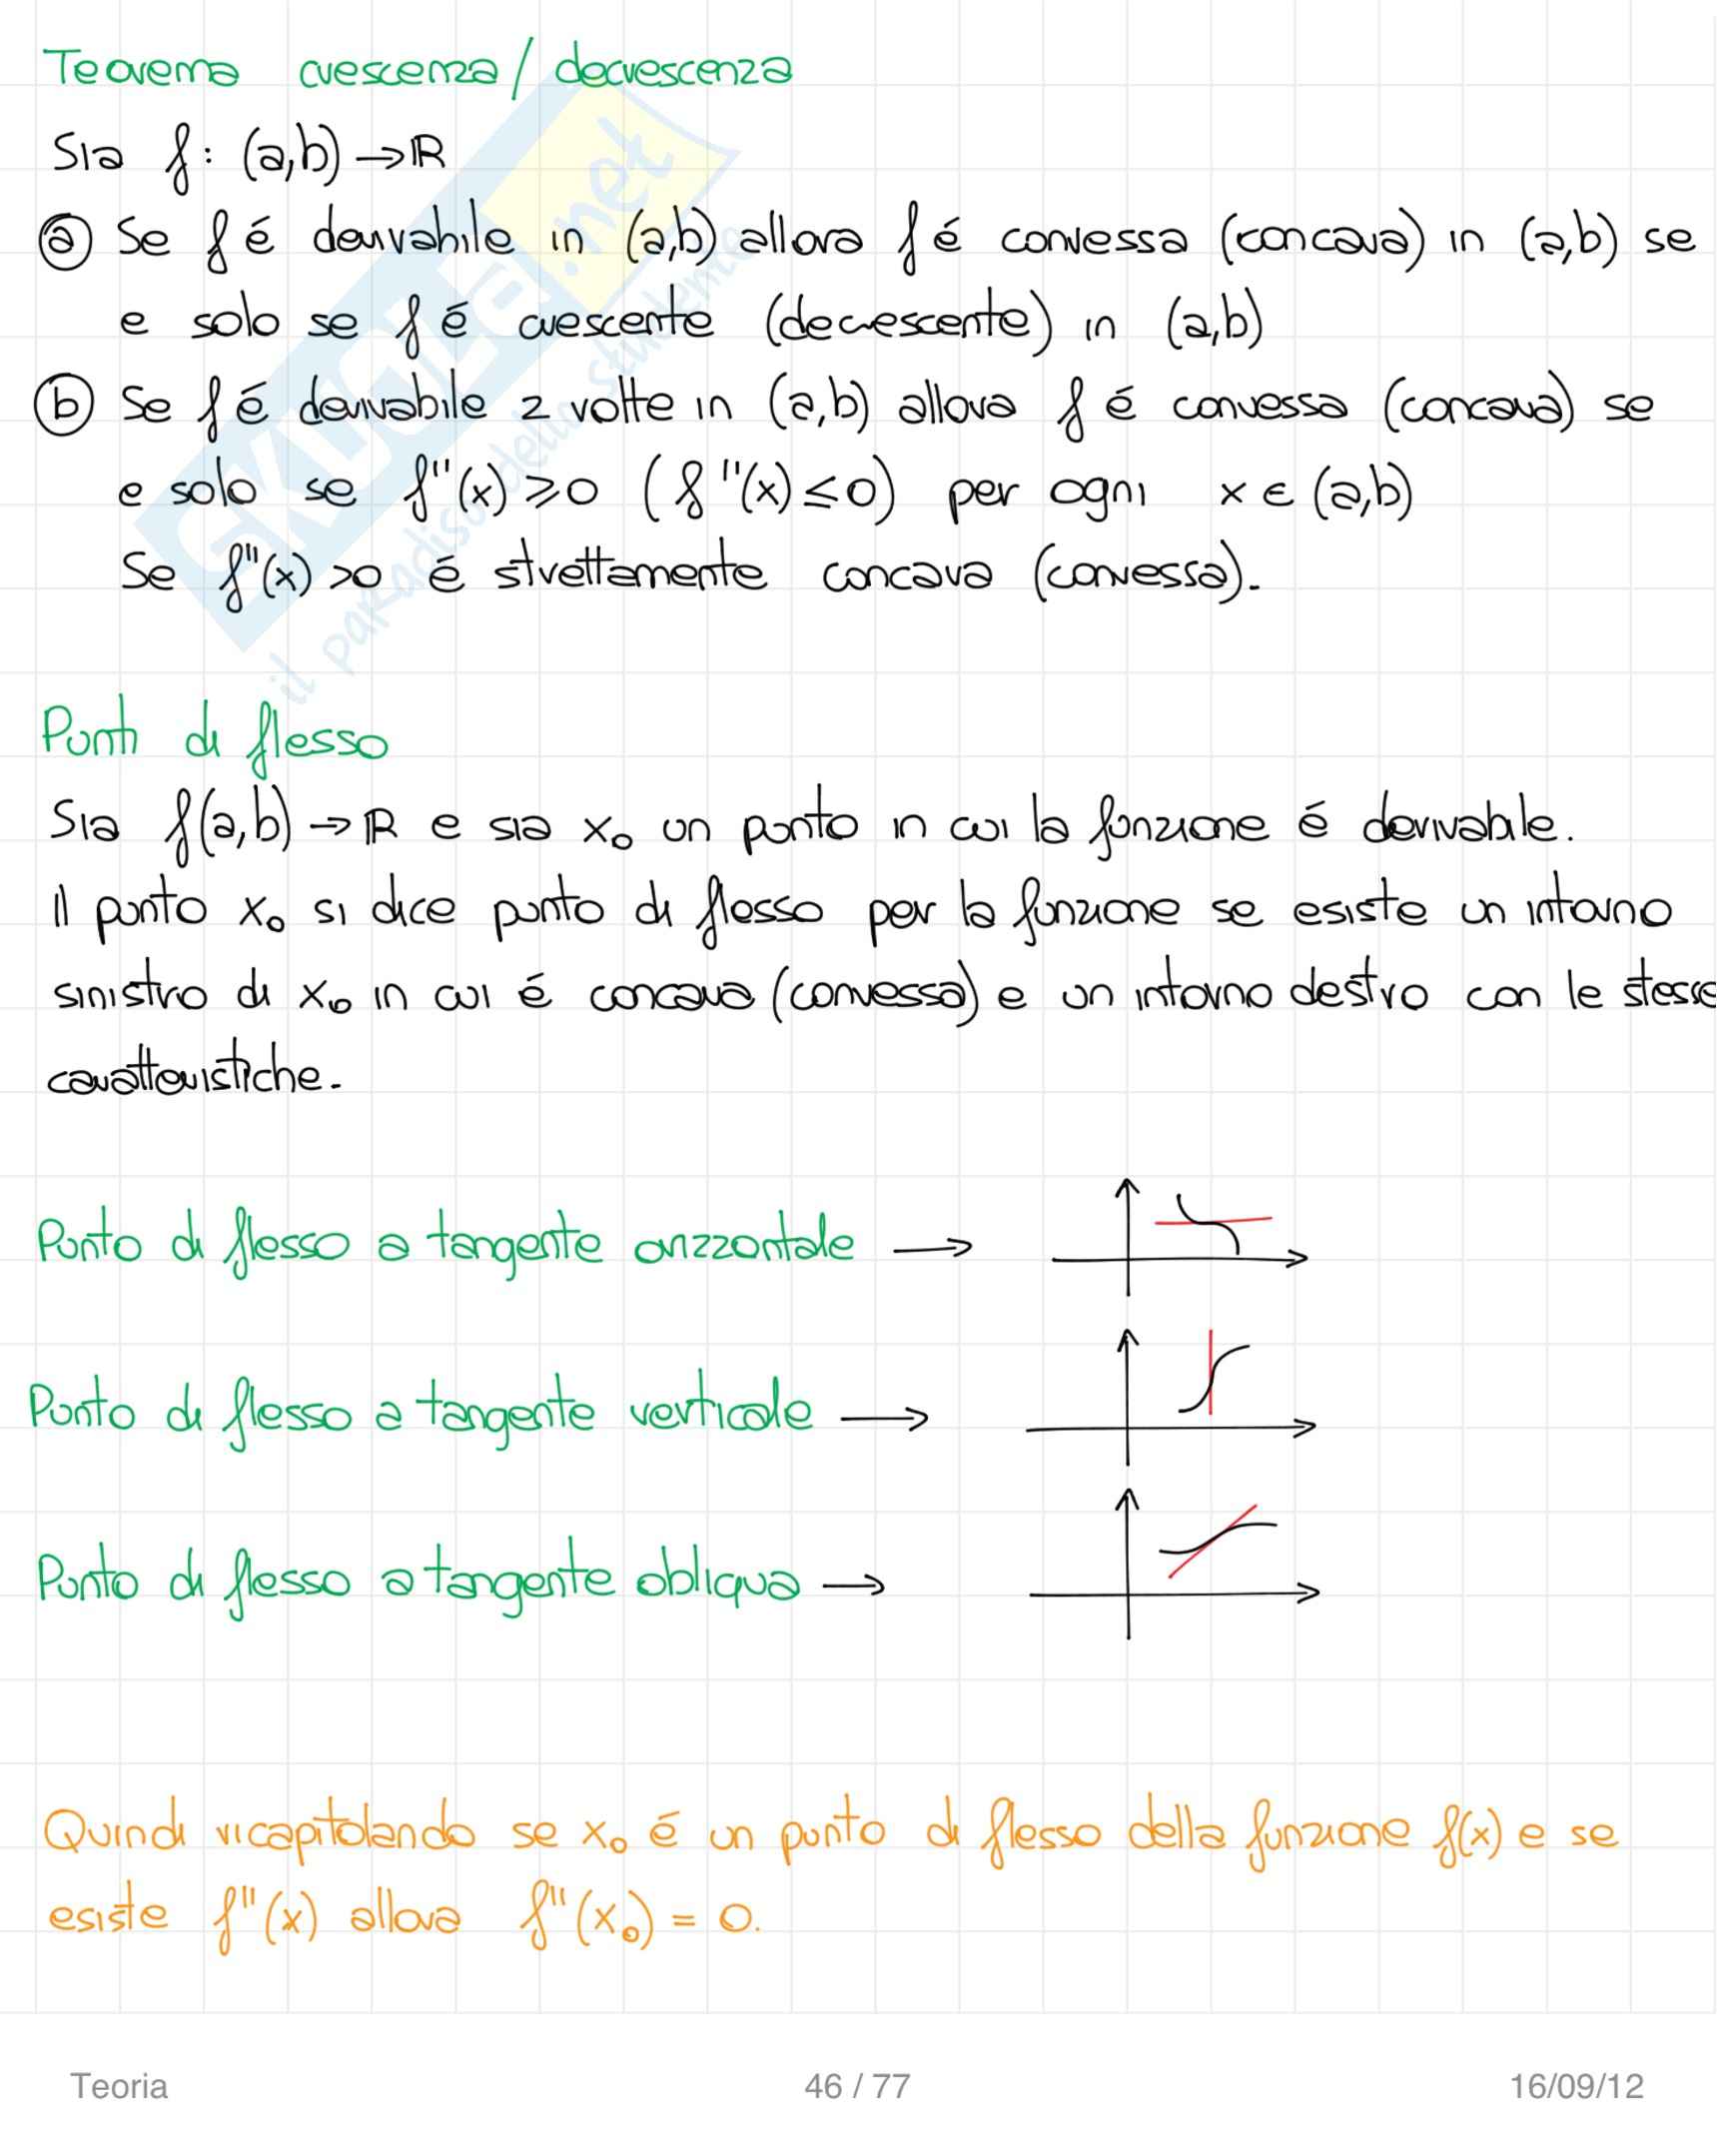 Teorema crescenza/decrescenza
Sia f: (a,b)→ℝ
ⓐ Se f é derivabile in (a,b) allora f é convessa (concava) in (a,b) se
e solo se f é crescente (decrescente) in (a,b)
ⓑ Se f é derivabile 2 volte in (a,b) allora f é convessa (concava) se
e solo se f"(x)⩾0 (f"(x)≤0) per ogni x∈(a,b)
Se f"(x)>0 é strettamente concava (convessa).
SKUOLA.net
il paradiso dello studente
Punti di flesso
Sia f(a,b)→ℝ e sia x₀ un punto in cui la funzione é derivabile.
Il punto x₀ si dice punto di flesso per la funzione se esiste un intorno
sinistro di x₀ in cui é concava (convessa) e un intorno destro con le stesse
caratteristiche.
Punto di flesso a tangente orizzontale →
Punto di flesso a tangente verticale →
Punto di flesso a tangente obliqua →
Quindi ricapitolando se x₀ é un punto di flesso della funzione f(x) e se
esiste f"(x) allora f"(x₀) = 0.
Teoria 46 / 77 16/09/12